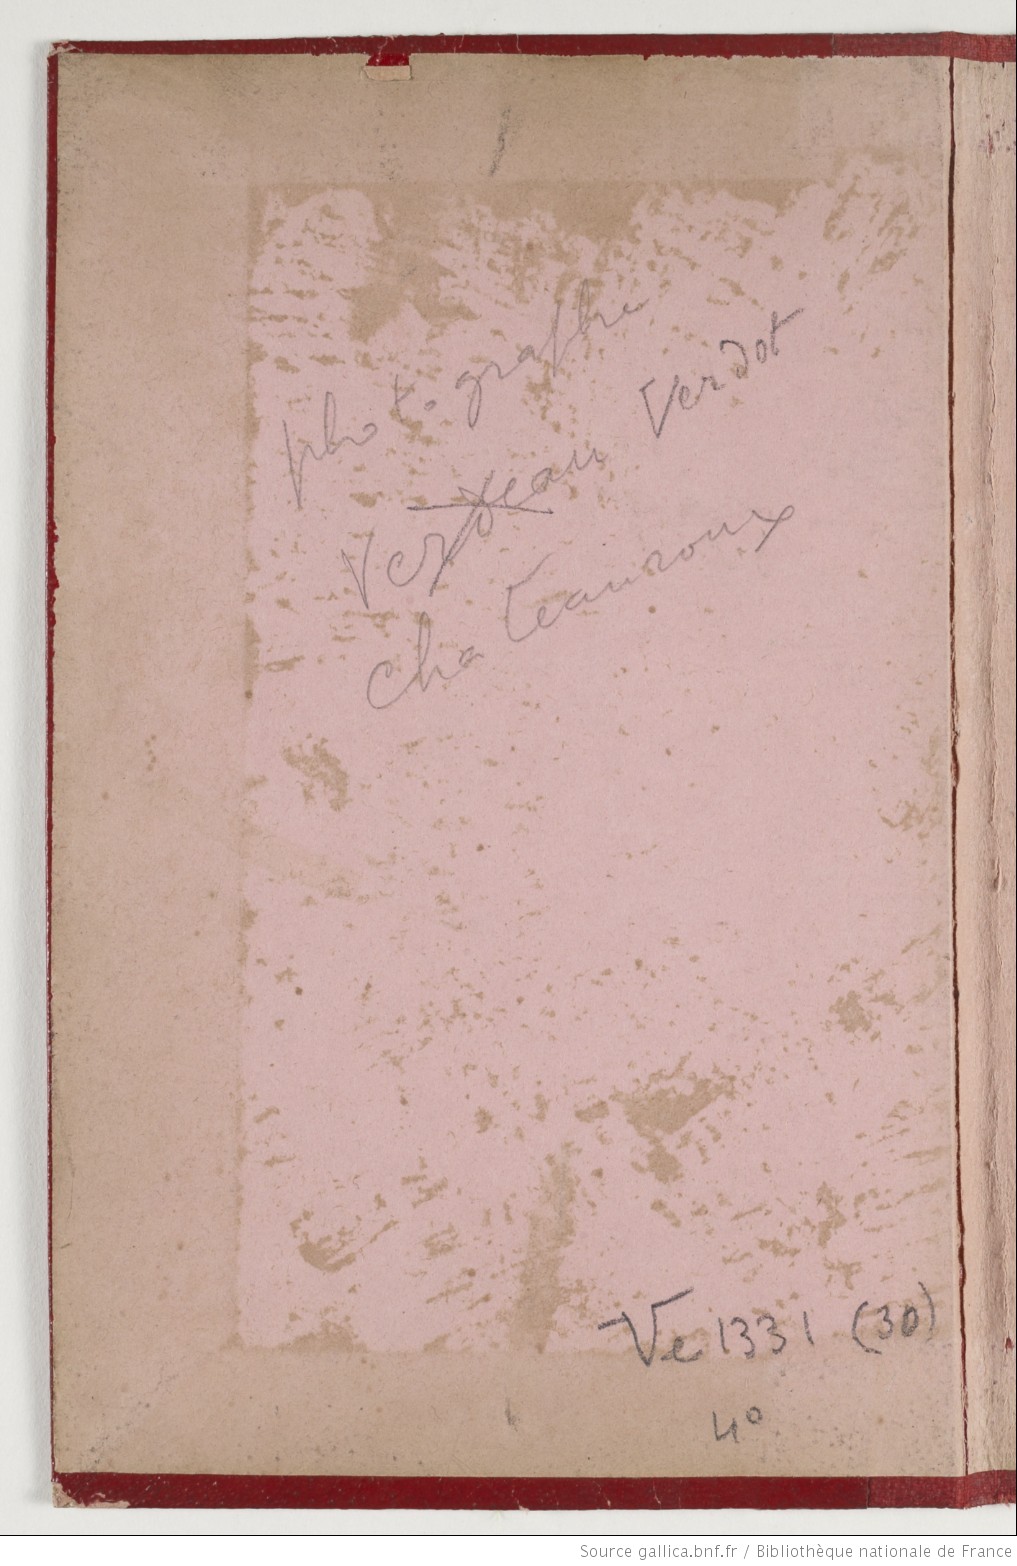 photographe
Verdeau Verdot
Chateauroux
Ve 1331 (30)
4º
Source gallica.bnf.fr / Bibliothèque nationale de France